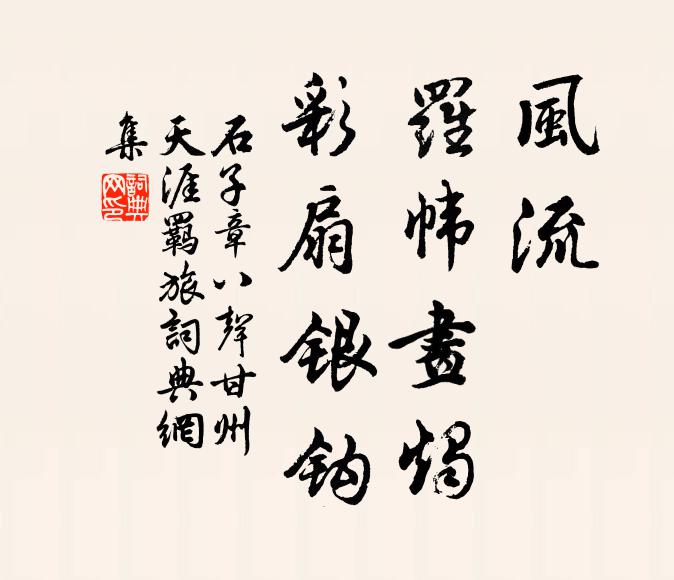 風流
羅幃畫燭
彩扇銀鈎
石子章八聲甘州
天涯羈旅詞典網
集
詞典网印